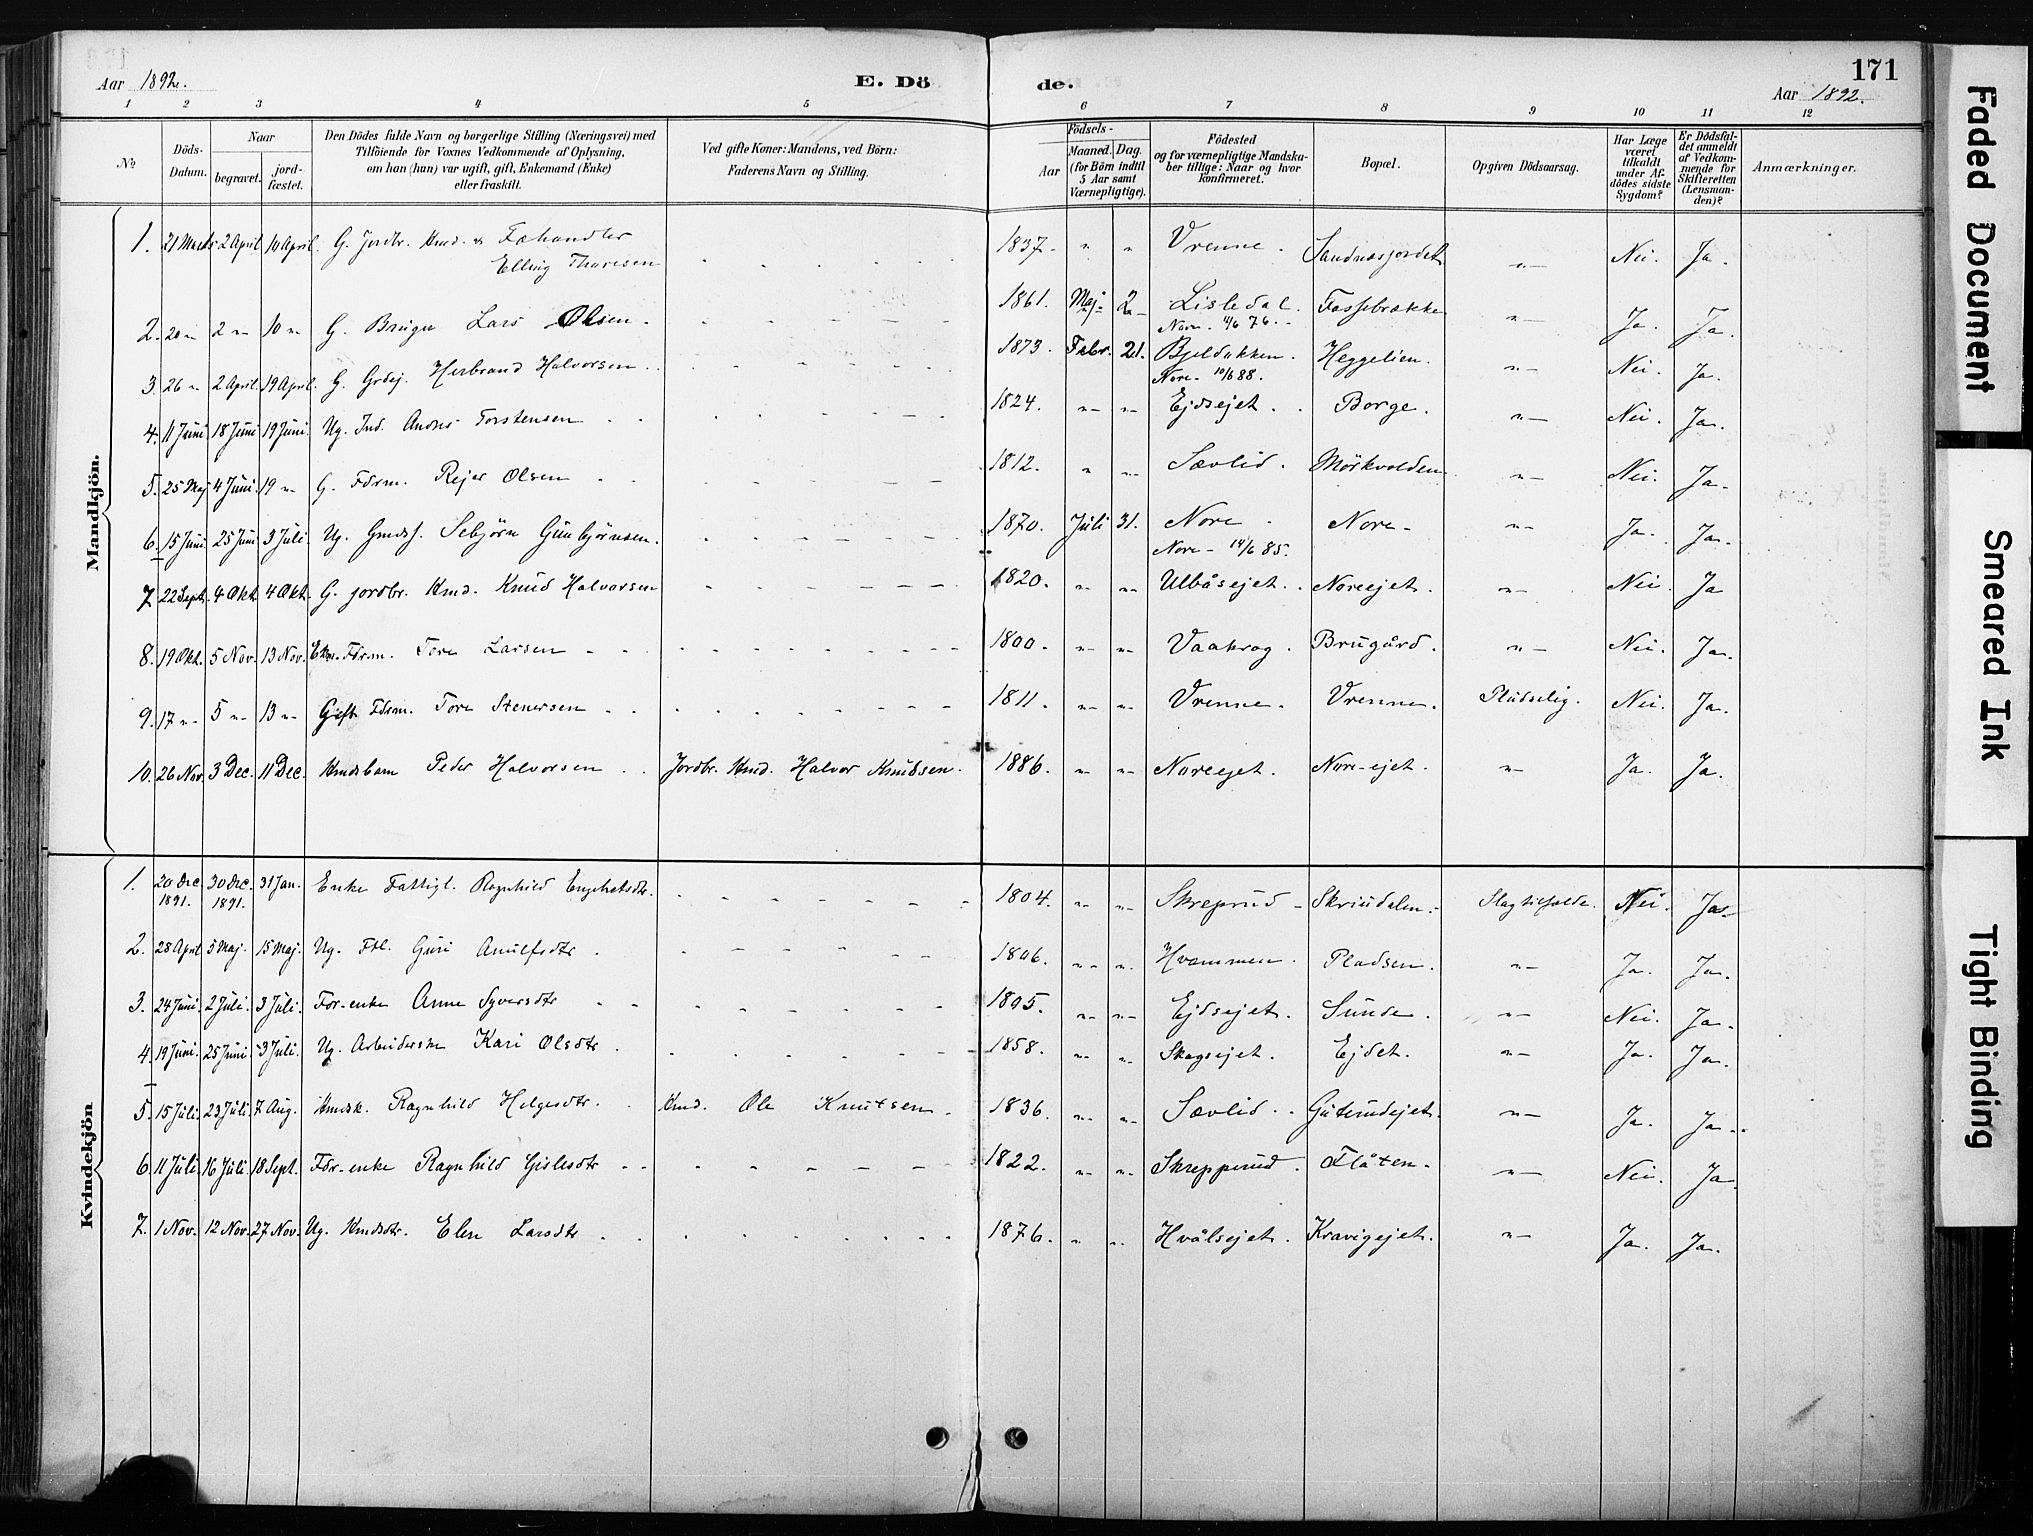 171
Aar 1892.
E. Dö
de.
Aar 1892.
1 2 3 4 5 6 7 8 9 10 11 12
No
Döds-Datum.
Naar
begravet.
jord-fæstet.
Den Dödes fulde Navn og borgerlige Stilling (Næringsvei) med
Tilföiende for Voxnes Vedkommende af Oplysning,
om han (hun) var ugift, gift, Enkemand (Enke)
eller fraskilt.
Ved gifte Koner: Mandens, ved Börn:
Faderens Navn og Stilling.
Födsels-
Aar
Maaned. Dag.
(for Börn indtil
5 Aar samt
Værnepligtige).
Födested
og for værnepligtige Mandska-
ber tillige: Naar og hvor
konfirmeret.
Bopæl.
Opgiven Dödsaarsag.
Har Læge
været
tilkaldt
under Af-
dödes sidste
Sygdom?
Er Dödsfal-
det anmeldt
af Vedkom-
mende for
Skifteretten
(Lensman-
den)?
Anmærkninger.
Mandkjön.
1. 21 Marts 2 April 10 April. G. Jordbr. Kmd. & Fæhandler
Elling Thoresen 1837. " " Vrenne. Sandnæsjordet "— Nei. Ja.
2. 20 " 2 " 10 " G. Bruger Lars Olsen. 1861. Maj 2 Lisledal. Fossebrække "— Ja. Ja.
Nore. 4/6 76.
3. 26 " 2 April. 19 April. G. Grdej. Herbrand Halvorsen 1873. Febr. 21. Bjeldokken. Heggelien. "— Nei. Ja.
Nore. 10/6 88.
4. 11 Juni 18 Juni 19 Juni. Ug. Ind. Andres Torstensen 1824. " " Ejdsejet. Borge. "— Nei. Ja.
5. 25 Maj 4 Juni. 19 " G. Fdrm. Rejer Olsen 1812. " " Sævlid. Mörkvolden "— Nei. Ja.
6. 15 Juni 25 Juni 3 Juli. Ug. Grmdsf. Sebjørn Gunbjørnsen. 1870. Juli 31. Nore. Nore "— Ja. Ja.
Nore 14/6 85.
7 22 Sept. 4 Okt 4 Okt. G. jordbr. Kmd. Knud Halvorsen 1820. " " Ulbåsejet. Noreejet. "— Nei. Ja
8. 19 Okt. 5 Nov. 13 Nov. Ekm. Fdrm. Tore Larsen 1800. " " Vaakrog. Brugård. "— Nei. Ja.
9. 17 " 5 " 13 " Gift Fdrm. Tore Stenersen 1811. " " Vrenne. Vrenne. Pludselig. Nei. Ja.
10. 26 Nov. 3 Dec. 11 Dec. Kmdsbarn Peder Halvorsen Jordbr. Kmd. Halvor Knudsen. 1886. " " Noreejet. Nore-ejet. "— Ja. Ja.
Kvindekjön
1. 20 Dec 1891. 30 Dec. 1891. 31 Jan. Enke Fattigl. Ragnhild Engebretsdtr. 1804. " " Skreprud Skrindalen. Slagtilfælde. Nei. Ja
2. 28 April 5 Maj. 15 Maj. Ug. Ftl. Guri Arnulfsdtr 1806. " " Hvammen. Pladsen. "— Ja. Ja.
3. 24 Juni. 2 Juli. 3 Juli. Fdr-enke Anne Syversdtr 1805. " " Ejdsejet. Sunde. "— Nei. Ja.
4. 19 Juni. 25 Juni 3 Juli. Ug. Arbeiderske Kari Olsdtr. 1858. " " Skogsejet. Ejdet. "— Ja. Ja.
5. 15 Juli. 23 Juli. 7 Aug. Kmdsk. Ragnhild Helgesdtr. Kmd. Ole Knutsen 1836. " " Sævlid. Guterudejet. "— Ja. Ja.
6. 11 Juli. 16 Juli. 18 Sept. Fdr-enke Ragnhild Gislesdtr 1822. " " Skrepprud. Flåten. "— Nei. Ja.
7. 1 Nov. 12 Nov. 27 Nov. Ug. Kmdsdtr. Elen Larsdtr 1876. " " Hvålsejet. Kravigejet. "— Ja. Ja.
Faded Document
Smeared Ink
Tight Binding